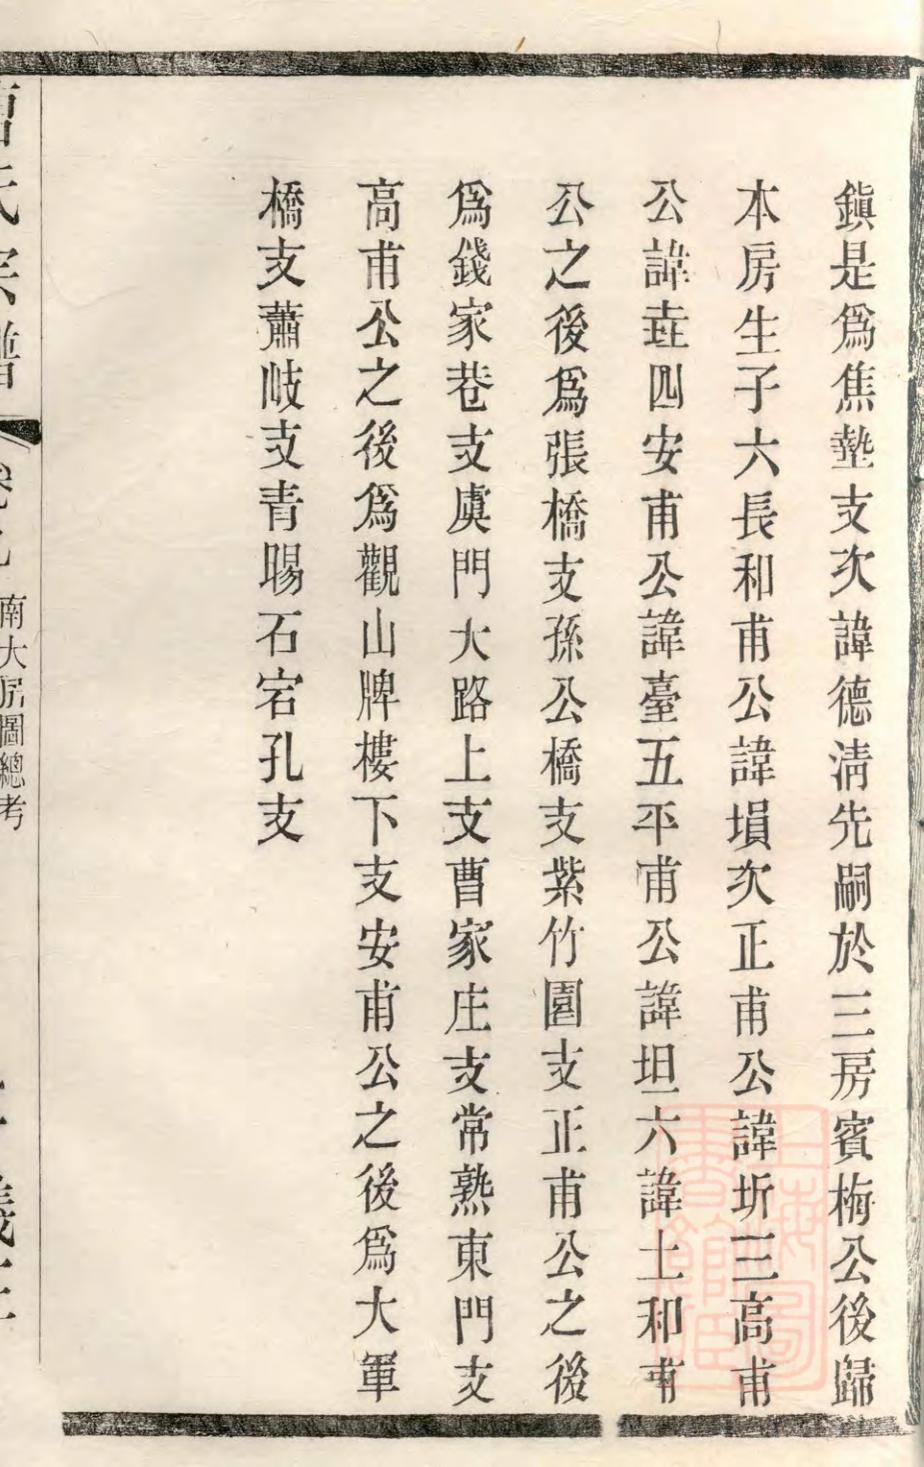 鎮是爲焦墊支次諱德淸先嗣於三房賓梅公後歸
本房生子六長和甫公諱塤次正甫公諱圻三高甫
公諱垚四安甫公諱臺五平甫公諱坦六諱土和甫
公之後爲張橋支孫公橋支紫竹園支正甫公之後
爲錢家巷支虞門大路上支曹家庄支常熟東門支
高甫公之後爲觀山牌樓下支安甫公之後爲大軍
橋支蕭岐支青暘石宕孔支
氏宗譜
南大房圖總考